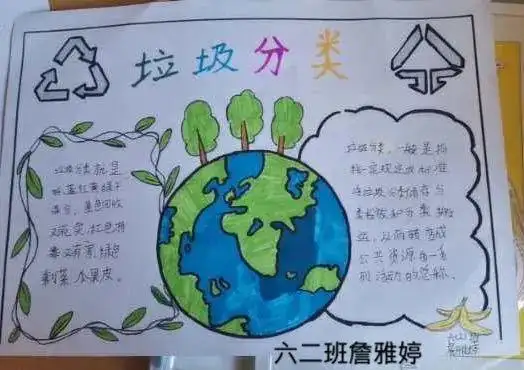 垃圾分类
垃圾分类就是
收蓝红黄绿干
蓝色回收
红色有
毒又有害,绿色
剩菜
果皮。
垃圾分类,一般是指
按一定规定或标准
将垃圾分类储存、分
类投放和分类搬
运,从而转变成
公共资源的一系
列活动的总称。
六(2)班
詹雅婷
六二班詹雅婷